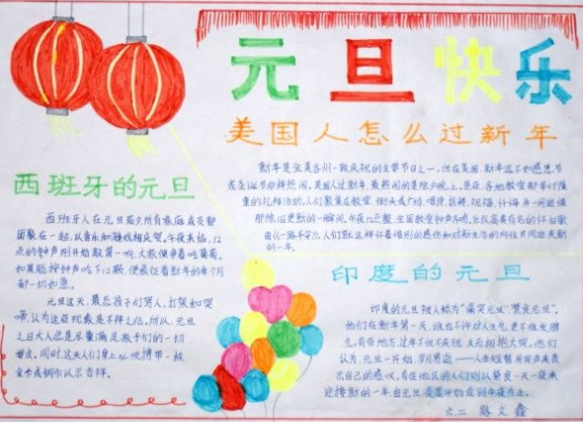 元旦快乐
美国人怎么过新年
新年是全美各州一致庆祝的主要节日之一。但在美国,新年远不如感恩节
或圣诞节那样热闹。美国人过新年,最热闹的是除夕晚上。是夜,各地教堂都举行隆
重的礼拜活动。人们聚集在教堂、街头或广场,唱诗、祈祷、祝福、忏悔,并一同迎候
那除旧更新的一瞬间。午夜12点整,全国教堂钟声齐鸣,乐队高奏有名的怀旧歌
人们就这样怀着惜别的感伤和对新生活的向往同时迎来新
的一年。
西班牙的元旦
西班牙人在元旦前夕所有家庭成员都
团聚在一起,以音乐和游戏相庆贺。午夜来临,12
点的钟声刚开始敲第一响,大家便争着吃葡萄。
如果能按钟声吃下12颗,便象征着新年的每个月
都一切如意。
元旦这天,最忌孩子们骂人、打架和哭
啼,认为这些现象是不祥之兆。所以,元旦
之日大人总是尽量满足孩子们的一切
要求。同时,这天人们身上必须携带一枚
金币或铜币以示吉祥。
印度的元旦
印度的元旦被人称为“痛哭元旦”,“禁食元旦”。
他们在新年第一天,谁也不许对人生气,更不准发脾
气。有些地方过年不但不庆祝,反而相抱大哭。他们
认为,元旦一开始,岁月易逝——人生短暂,用哭声来表
示自己的感叹。有些地区的人们则以禁食一天一夜来
迎接新的一年,由元旦凌晨开始直到午夜为止。
六.二 路文鑫